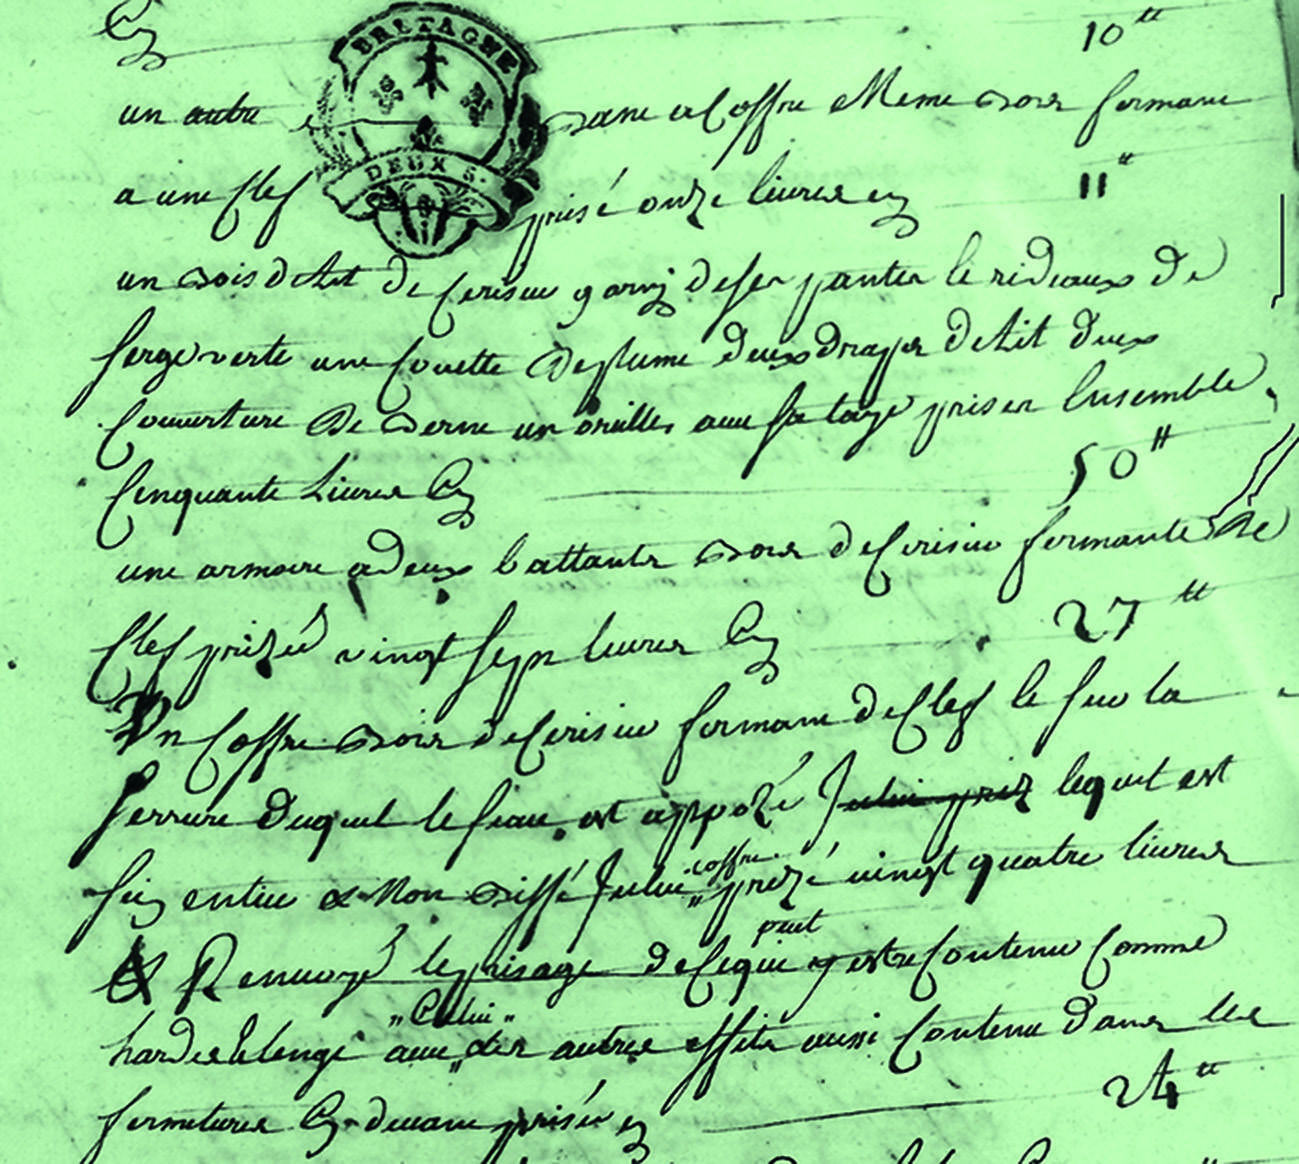 Cy 10 ₶
BRETAGNE
un autre dans ce Coffre Meme bois fermant
DEUX S.
a une Clef prisé onze livres cy 11 ₶
un bois de Lit de Cerisier garny de ses pantes le rideaux de
Serge verte une Couette de plume deux draps de Lit deux
Couverture de berne un oreillé avec sa taye priser Ensemble
Cinquante Livres Cy 50 ₶
une armoire a deux battants bois de Cerisier fermante de
Clef prizée vingt Sept livres Cy 27 ₶
Un Coffre bois de Cerisier fermant de Clef le sur la
Serrure duquel le Seau est appozé Icelui priz lequel est
coffre
Sein entier & Non biffé Icelui prizé vingt quatre livres
peut
& Renvoyé le prisage de Ce qui y estre Contenu Comme
„Celui„
hardes & lenge avec des autres effets aussi Contenu dans les
fermetures Cy-devant prisée cy 24 ₶